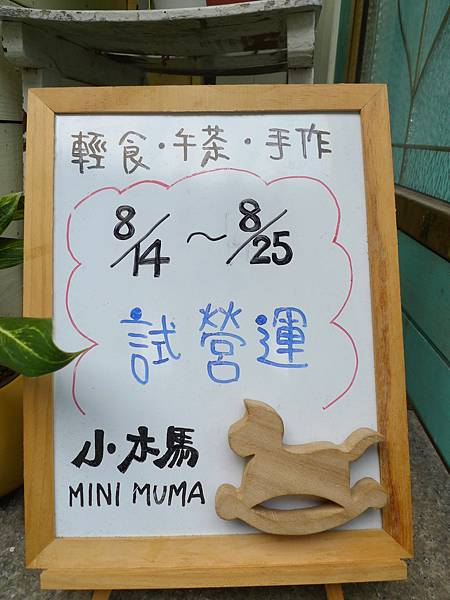 輕食·午茶·手作
8/14～8/25
試營運
小木馬
MINI MUMA